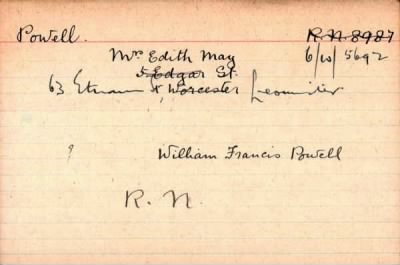 Powell. R. N. 8987
Mrs Edith May 6/10/5692
5 Edgar St.
63 Etnam St Worcester Leominster
?
William Francis Powell
R. N.